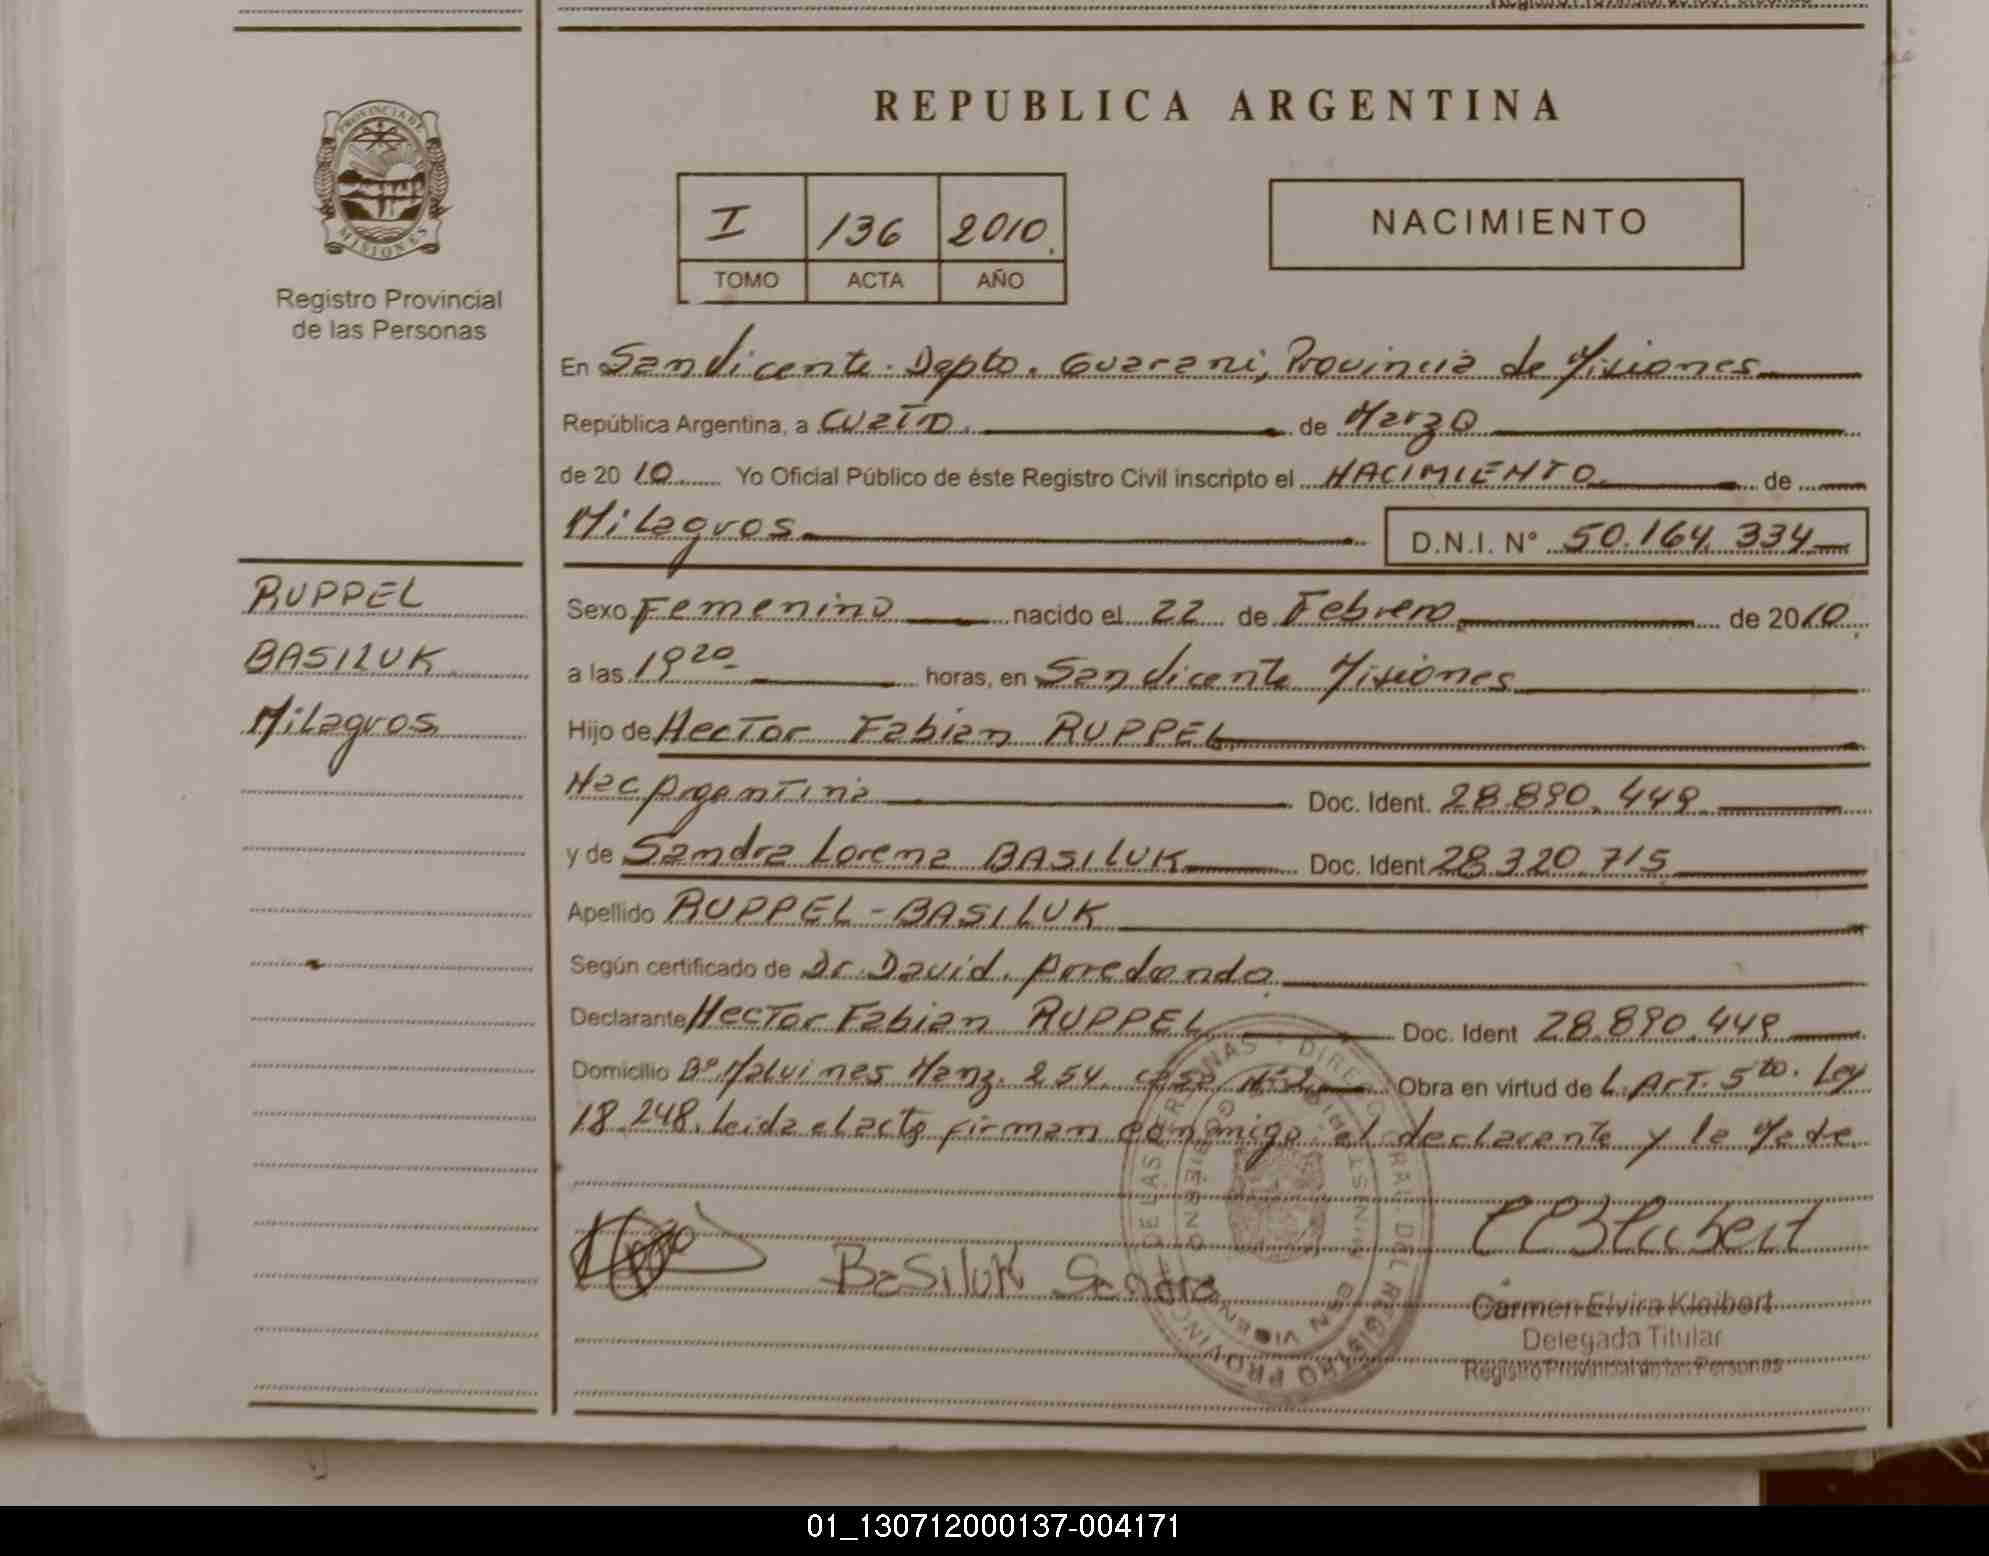 PROVINCIA DE
MISIONES
Registro Provincial
de las Personas
RUPPEL
BASILUK
Milagros
REPUBLICA ARGENTINA
I 136 2010.
TOMO ACTA AÑO
NACIMIENTO
En San Vicente. Depto. Guarani, Provincia de Misiones
República Argentina, a cuatro. de Marzo
de 20 10 Yo Oficial Público de éste Registro Civil inscripto el NACIMIENTO de
Milagros D.N.I. N° 50.164.334
Sexo Femenino nacido el 22 de Febrero de 2010
a las 19 20 horas, en San Vicente Misiones
Hijo de Hector Fabian RUPPEL
Nac Argentina Doc. Ident. 28.890.449
y de Sandra Lorena BASILUK Doc. Ident 28.320.715
Apellido RUPPEL-BASILUK
Según certificado de Dr. David Arredondo
Declarante Hector Fabian RUPPEL Doc. Ident 28.890.449
Domicilio B° Malvinas Manz. 254 casa Obra en virtud de L. Art. 5to. Ley
18.248. Leida el acta firman conmigo el declarante y la Madre
BaSiluK Sandra
Carmen Elvira Kleibert
Delegada Titular
Registro Provincial de las Personas
01_130712000137-004171